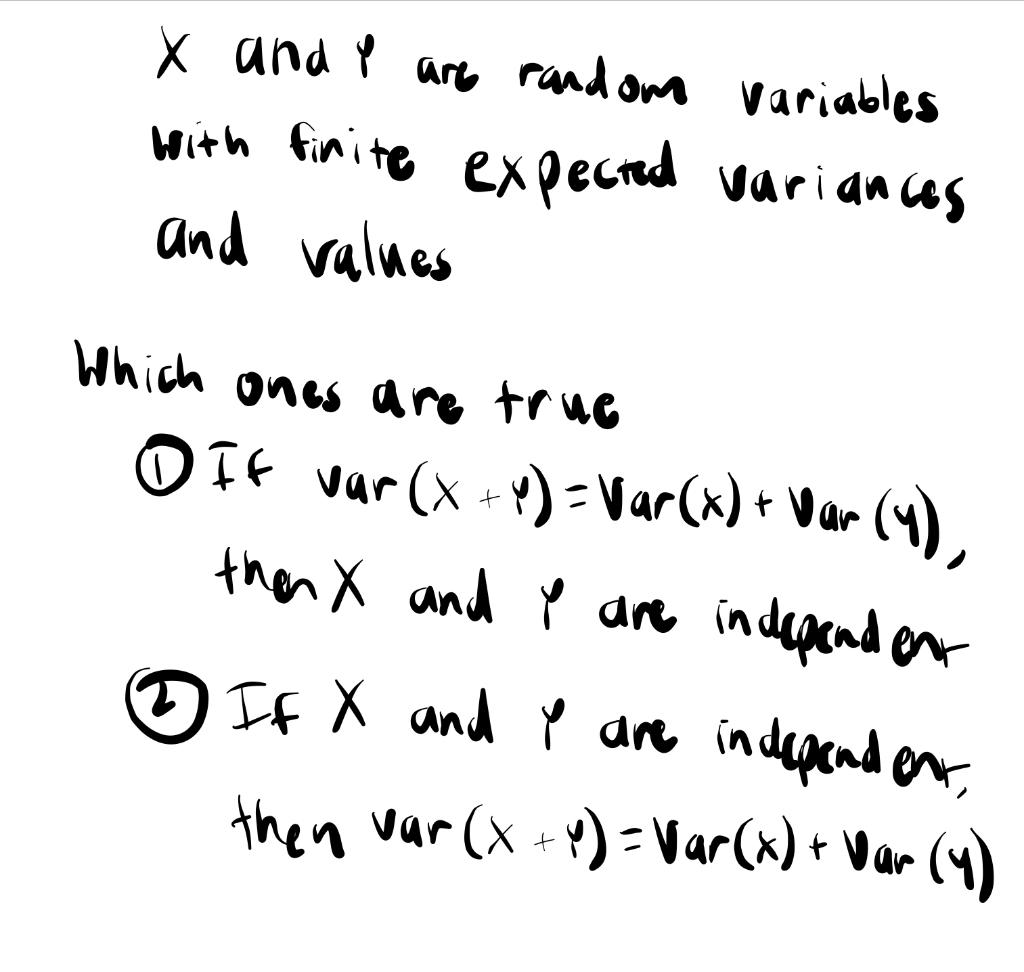 X and Y are random variables
with finite expected variances
and values
Which ones are true
① If var(X + Y) = Var(x) + Var(y),
then X and Y are independent
② If X and Y are independent,
then var(X + Y) = Var(x) + Var(y)